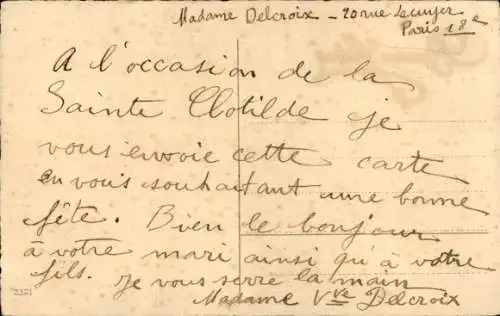 Madame Delcroix – 20 rue Lecuyer
Paris 18e
A l'occasion de la
Sainte Clotilde je
vous envoie cette carte
en vous souhaitant une bonne
fête. Bien le bonjour
à votre mari ainsi qu'à votre
fils. Je vous serre la main
Madame Vve Delcroix